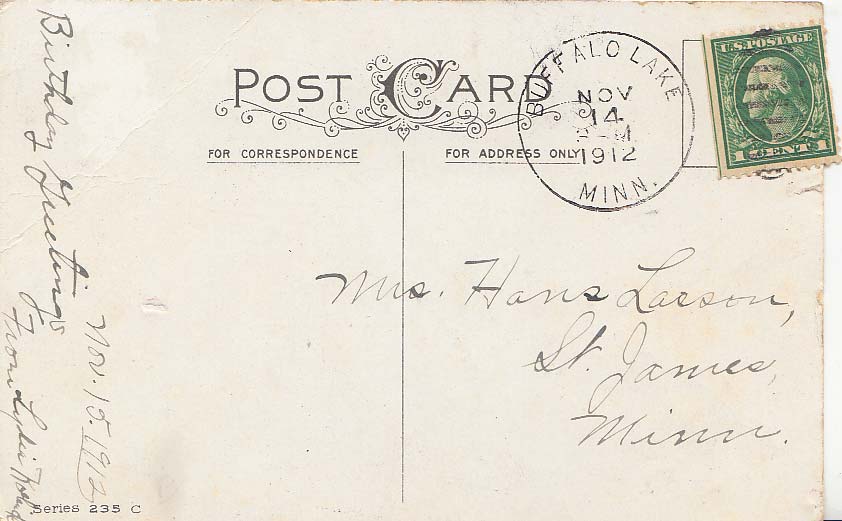 POST CARD
FOR CORRESPONDENCE
FOR ADDRESS ONLY
BUFFALO LAKE
NOV
14
M
1912
MINN.
U.S. POSTAGE
1 CENT 1
Mrs. Hans Larson,
St. James,
Minn.
Birthday Greetings
From Lydia
Nov. 15. 1912
Series 235 C